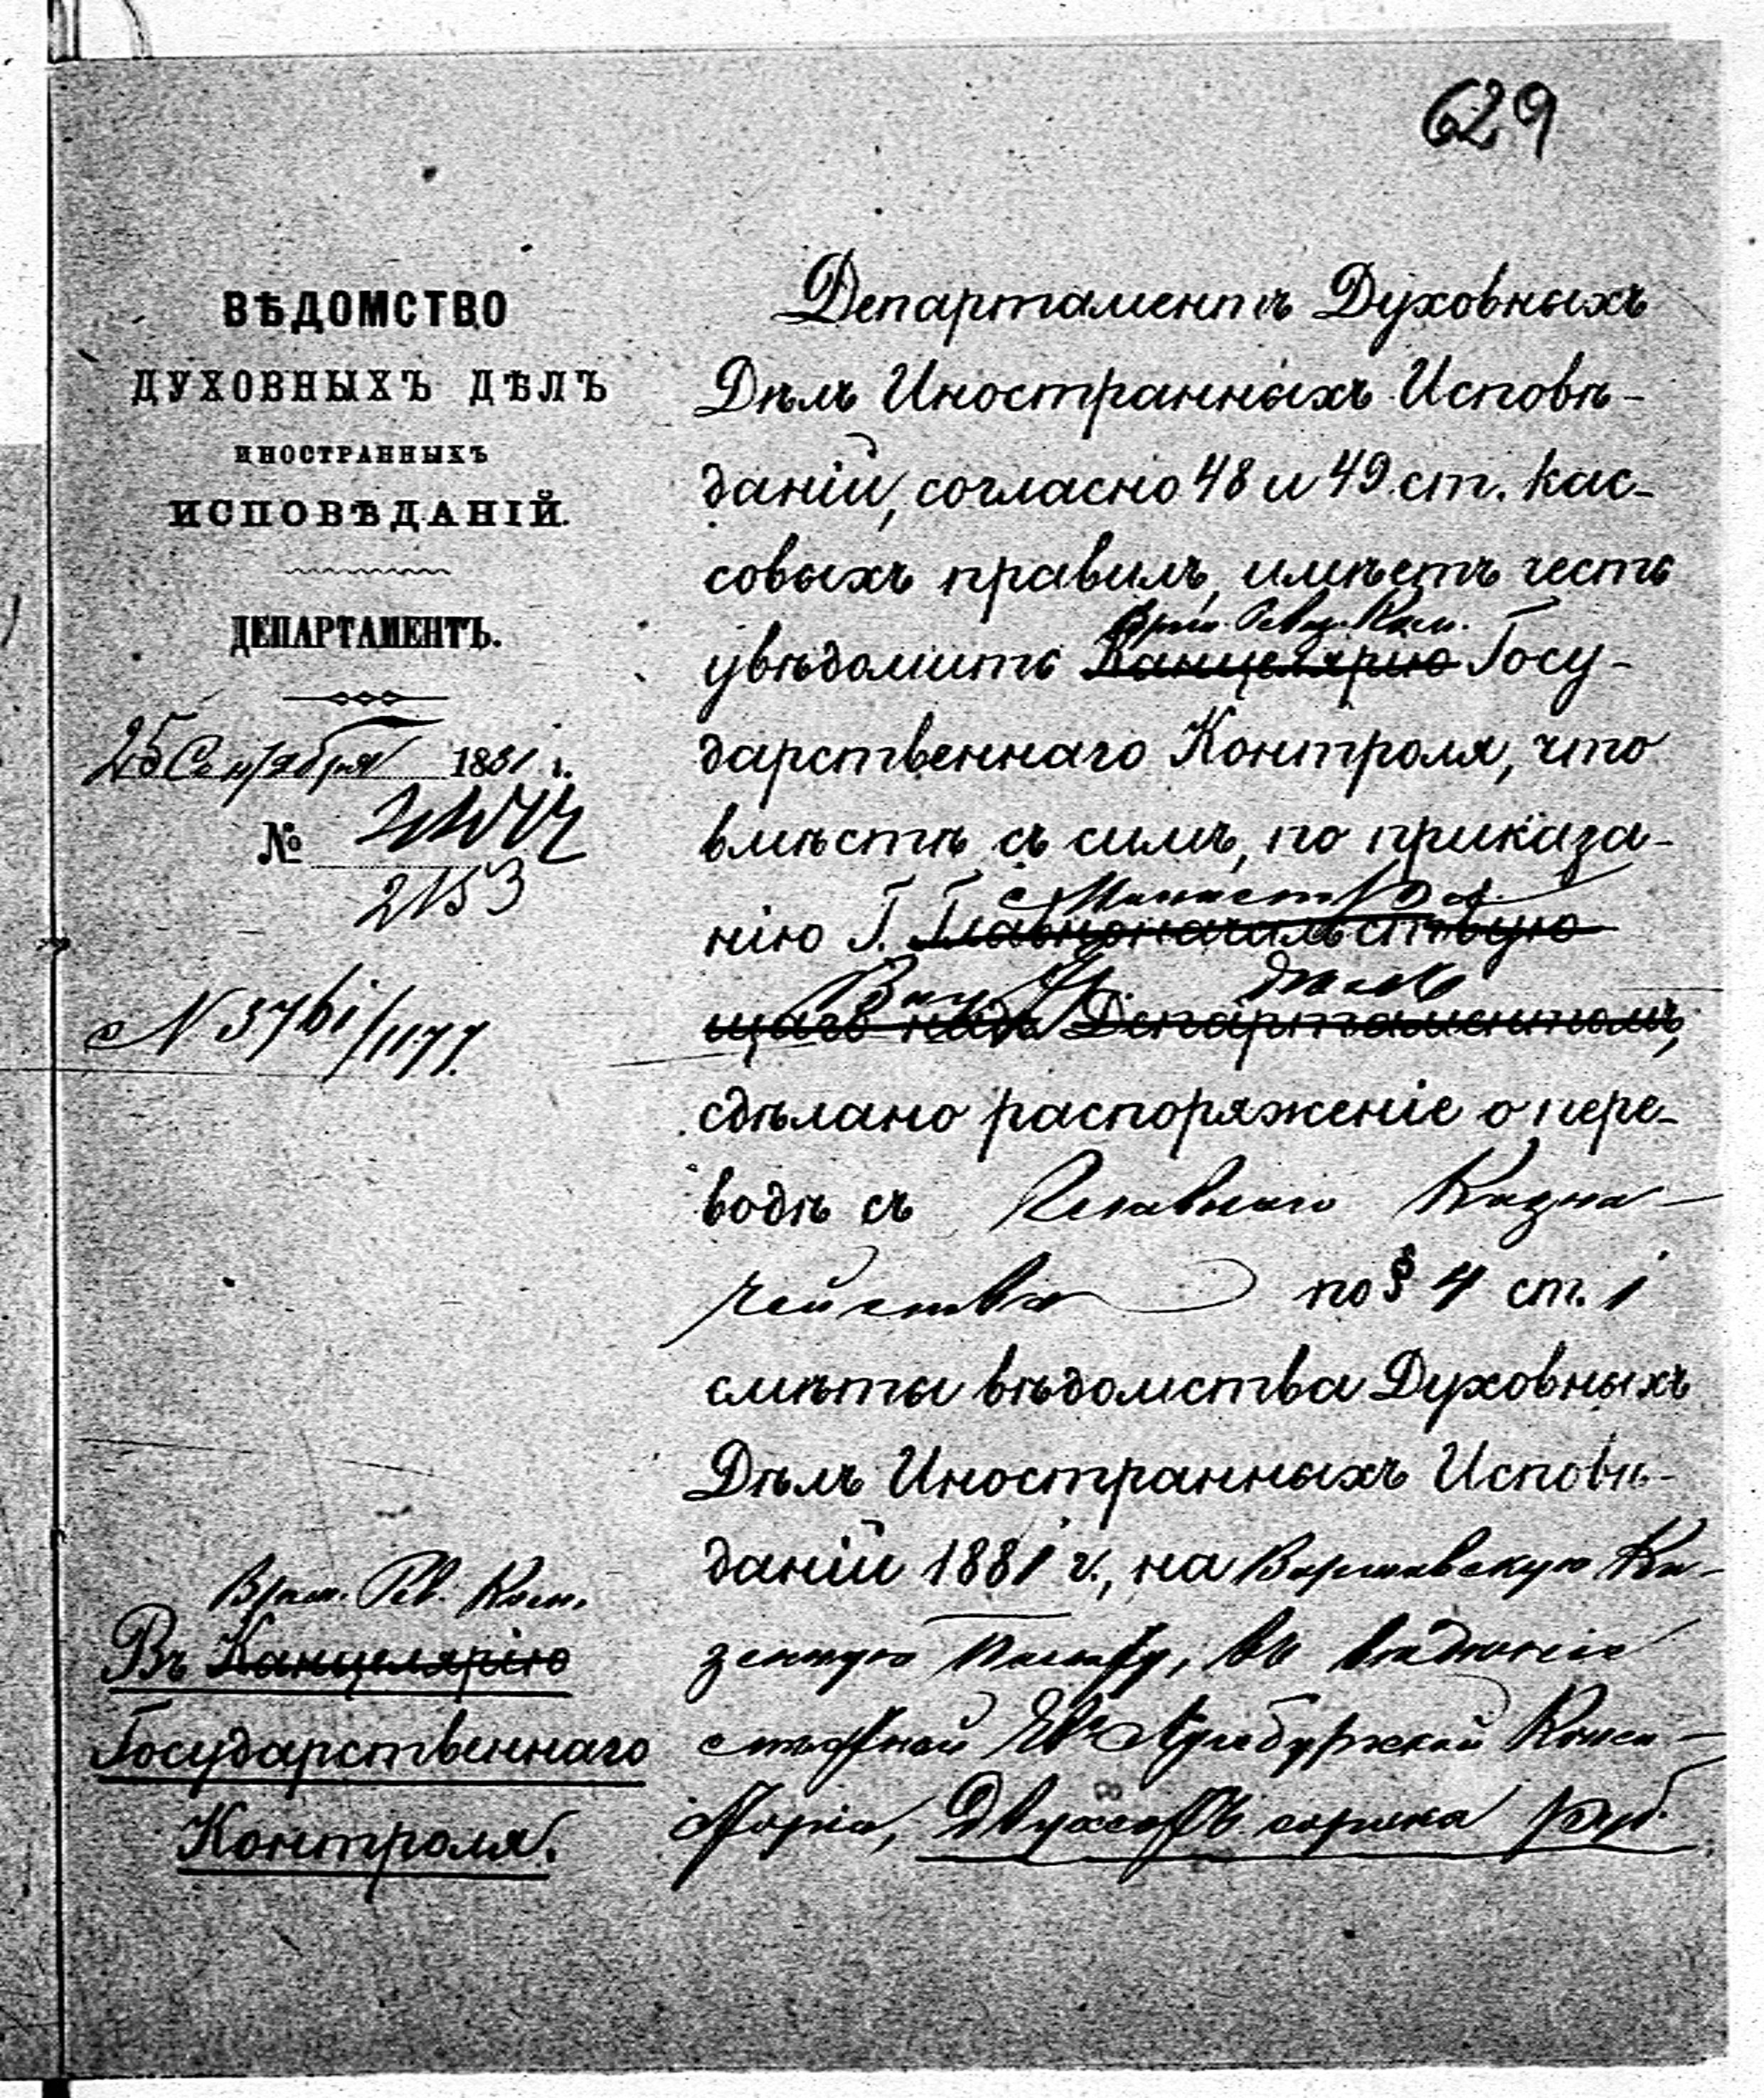 629
ВѢДОМСТВО
ДУХОВНЫХЪ ДѢЛЪ
ИНОСТРАННЫХЪ
ИСПОВѢДАНІЙ.
ДЕПАРТАМЕНТЪ.
25 Сентября 1881 г.
№
2153
№ 3761/1177.
Врем. Рев. Ком.
Въ Канцелярію
Государственнаго
Контроля.
Департаментъ Духовныхъ
Дѣлъ Иностранныхъ Исповѣ-
даній, согласно 48 и 49 ст. кас-
совыхъ правилъ, имѣетъ честь
Врем. Ревиз. Ком.
увѣдомить Канцелярію Госу-
дарственнаго Контроля, что
вмѣстѣ съ симъ, по приказа-
Министра
нію Г. Главноначальствую
Вну Дѣлъ
щаго надъ Департаментомъ,
сдѣлано распоряженіе о пере-
водѣ съ Главнаго Казна-
чейства по § 4 ст. 1
смѣты вѣдомства Духовныхъ
Дѣлъ Иностранныхъ Исповѣ-
даній 1881 г., на Варшавскую Ка-
зенную Палату, въ вѣдѣніе
Ев. Аугсбургской Конси-
сторіи, двухсотъ сорока руб.